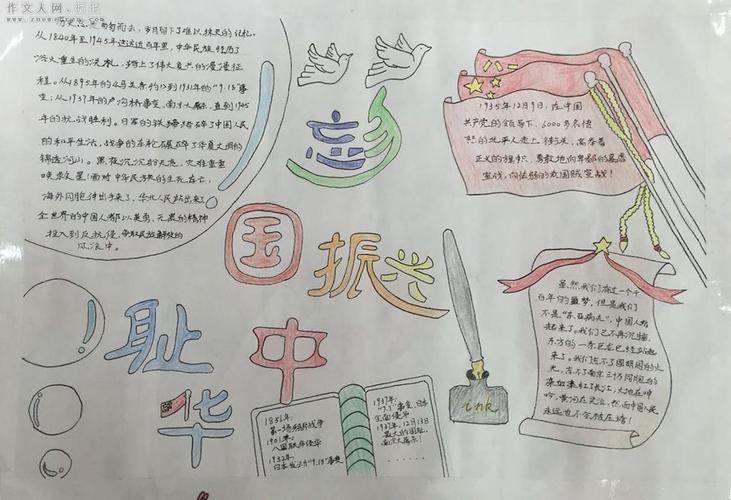 作文人网·标准
www.zuowenren.com
历史总是匆匆而去，岁月留下了难以抹灭的记忆。
从1840年至1945年这近百年里，中华民族经历了
浴火重生的洗礼，踏上了伟大复兴的漫漫征
程。从1895年的《马关条约》到1931年的"9.18"事
变；从1937年的卢沟桥事变、南京大屠杀，直到1945
年的抗战胜利。日军的铁蹄踏碎了中国人民
的和平生活，战争的
锦绣河山。黑夜沉沉的天亮，灾难重重
唤众醒！面对中华民族的生死存亡，
海外同胞伸出手来了，华北人民站出来了，
全世界的中国人都以英勇、无畏的精神
投入到反抗侵、争取民族解放的
洪流中。
1935年12月9日，在中国
共产党的领导下，6000多名愤
怒的北平人走上街头，高举着
正义的旗帜，勇敢地向卑鄙的暴露
宣战，向怯弱的卖国贼宣战！
忘
国
振兴
耻
中
华
虽然我们有过一个千
百年的噩梦，但是我们
不是"东亚病夫"，中国人站
起来了。我们已不再沉睡，
东方的一条巨龙已经站起
来了。我们忘不了圆明园的火
光，忘不了南京三十万同胞的
鲜血染红了长江，大地在呻
吟，黄河在哭泣，然而中国人民
永远也不会被压垮！
ink
1856年，
第二次鸦片战争
1901年，
八国联军侵华
1932年，
日本发动"9.18"事变
1937年：
"7.7"事变，日本
全面侵华
1937年，12月13日
最大的国耻，
南京大屠杀！
……